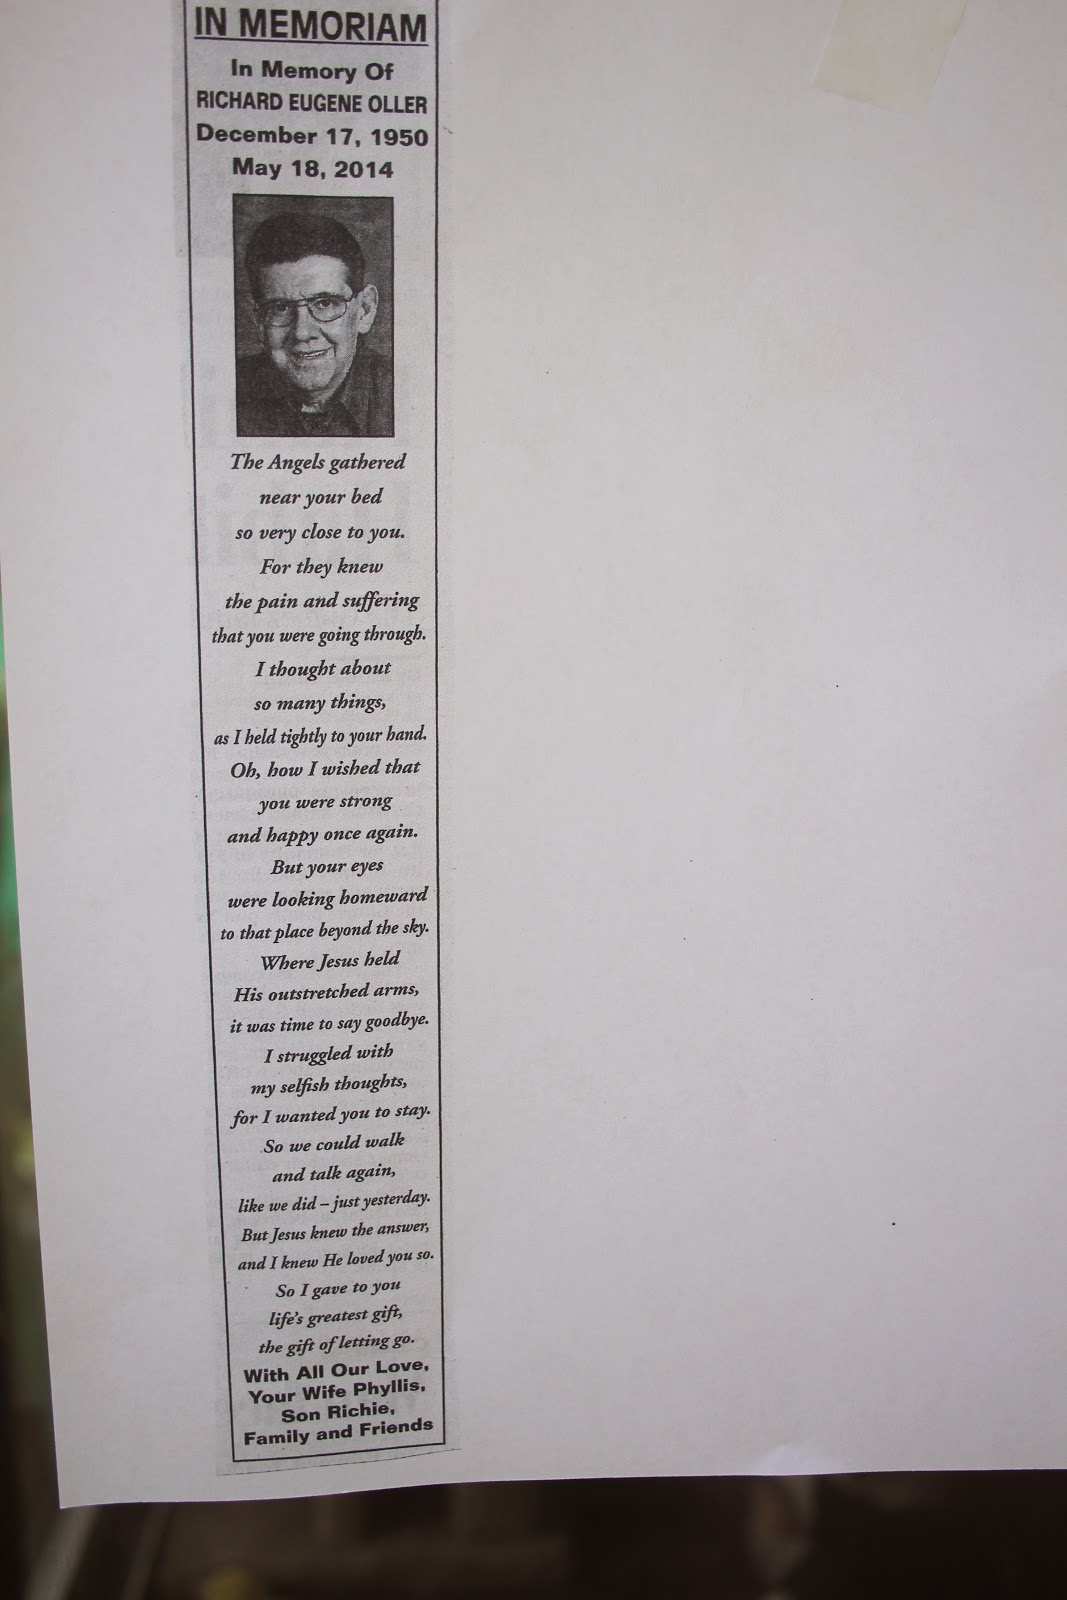 IN MEMORIAM
In Memory Of
RICHARD EUGENE OLLER
December 17, 1950
May 18, 2014
The Angels gathered
near your bed
so very close to you.
For they knew
the pain and suffering
that you were going through.
I thought about
so many things,
as I held tightly to your hand.
Oh, how I wished that
you were strong
and happy once again.
But your eyes
were looking homeward
to that place beyond the sky.
Where Jesus held
His outstretched arms,
it was time to say goodbye.
I struggled with
my selfish thoughts,
for I wanted you to stay.
So we could walk
and talk again,
like we did – just yesterday.
But Jesus knew the answer,
and I knew He loved you so.
So I gave to you
life's greatest gift,
the gift of letting go.
With All Our Love,
Your Wife Phyllis,
Son Richie,
Family and Friends